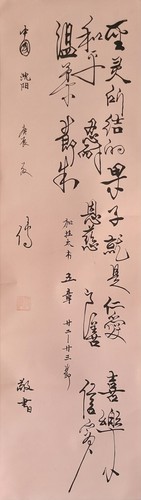 聖灵所结的果子就是仁愛 喜樂
和平 忍耐 恩慈 良善 信實
温柔 節制
加拉太书 五章 廿二—廿三節
中國 沈阳 庚辰 夏 傅 敬書